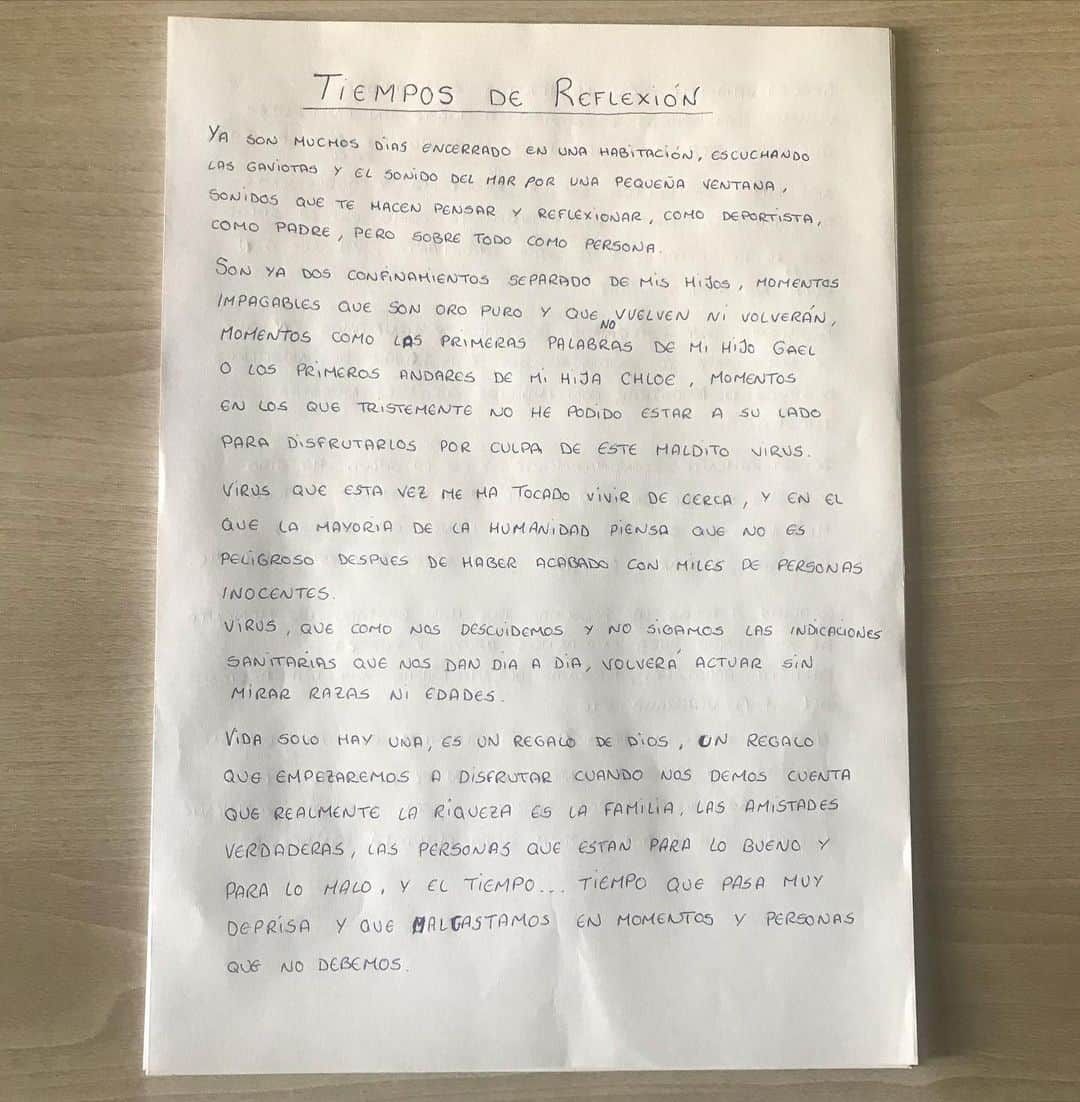 TIEMPOS DE REFLEXIÓN
YA SON MUCHOS DÍAS ENCERRADO EN UNA HABITACIÓN, ESCUCHANDO
LAS GAVIOTAS Y EL SONIDO DEL MAR POR UNA PEQUEÑA VENTANA,
SONIDOS QUE TE HACEN PENSAR Y REFLEXIONAR, COMO DEPORTISTA,
COMO PADRE, PERO SOBRE TODO COMO PERSONA.
SON YA DOS CONFINAMIENTOS SEPARADO DE MIS HIJOS, MOMENTOS
IMPAGABLES QUE SON ORO PURO Y QUE NO VUELVEN NI VOLVERÁN,
MOMENTOS COMO LAS PRIMERAS PALABRAS DE MI HIJO GAEL
O LOS PRIMEROS ANDARES DE MI HIJA CHLOE, MOMENTOS
EN LOS QUE TRISTEMENTE NO HE PODIDO ESTAR A SU LADO
PARA DISFRUTARLOS POR CULPA DE ESTE MALDITO VIRUS.
VIRUS QUE ESTA VEZ ME HA TOCADO VIVIR DE CERCA, Y EN EL
QUE LA MAYORIA DE LA HUMANIDAD PIENSA QUE NO ES
PELIGROSO DESPUES DE HABER ACABADO CON MILES DE PERSONAS
INOCENTES.
VIRUS, QUE COMO NOS DESCUIDEMOS Y NO SIGAMOS LAS INDICACIONES
SANITARIAS QUE NOS DAN DIA A DIA, VOLVERÁ ACTUAR SIN
MIRAR RAZAS NI EDADES.
VIDA SOLO HAY UNA, ES UN REGALO DE DIOS, UN REGALO
QUE EMPEZAREMOS A DISFRUTAR CUANDO NOS DEMOS CUENTA
QUE REALMENTE LA RIQUEZA ES LA FAMILIA, LAS AMISTADES
VERDADERAS, LAS PERSONAS QUE ESTAN PARA LO BUENO Y
PARA LO MALO, Y EL TIEMPO... TIEMPO QUE PASA MUY
DEPRISA Y QUE MALGASTAMOS EN MOMENTOS Y PERSONAS
QUE NO DEBEMOS.